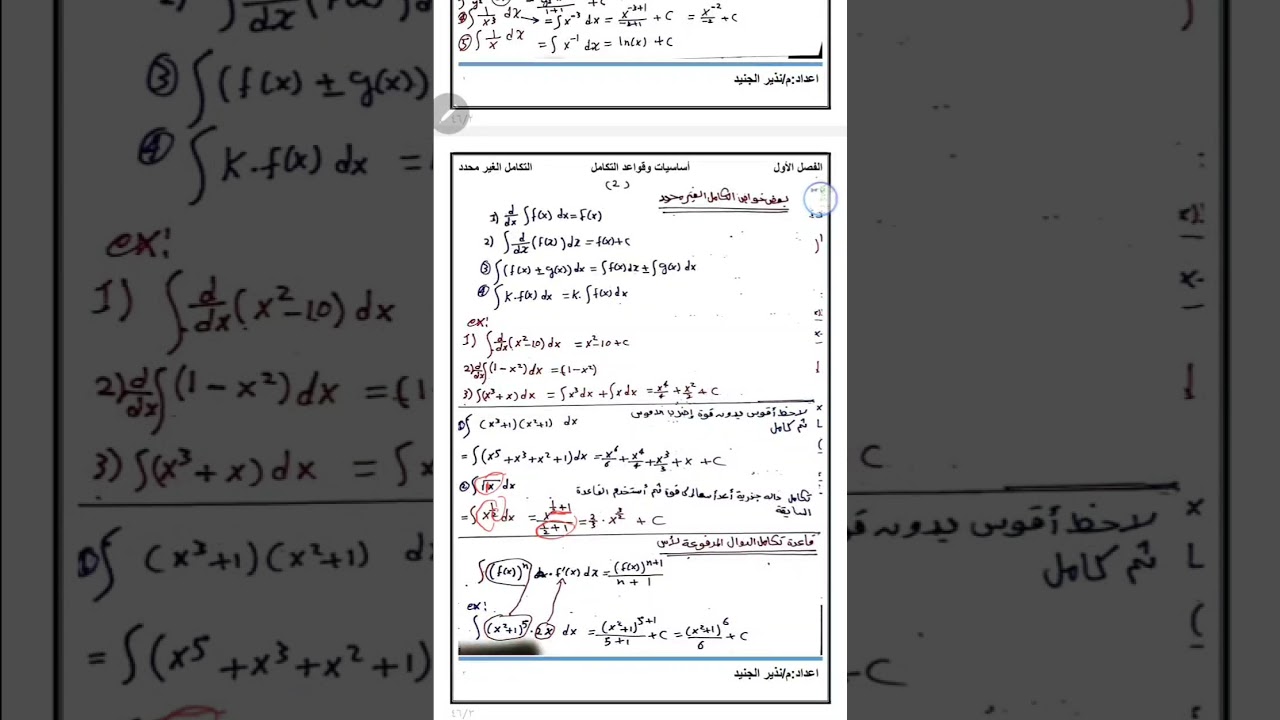 ④ ∫ 1/x³ dx → = ∫ x⁻³ dx = x⁻³⁺¹/-3+1 + C = x⁻²/-2 + C
⑤ ∫ 1/x dx = ∫ x⁻¹ dx = ln(x) + C
اعداد:م/نذير الجنيد
٤٦/٢
الفصل الأول أساسيات وقواعد التكامل التكامل الغير محدد
(2)
بعض خواص التكامل الغير محدد
1) d/dx ∫ f(x) dx = f(x)
2) ∫ d/dx (f(x)) dx = f(x)+C
③ ∫ (f(x) ± g(x)) dx = ∫ f(x) dx ± ∫ g(x) dx
④ ∫ K.f(x) dx = K.∫ f(x) dx
ex:
1) ∫ d/dx (x²-10) dx = x²-10+C
2) d/dx ∫ (1-x²) dx = (1-x²)
3) ∫ (x³+x) dx = ∫ x³ dx + ∫ x dx = x⁴/4 + x²/2 + C
① ∫ (x³+1)(x²+1) dx لاحظ أقوس بدون قوة إضرب القوس
ثم كامل
= ∫ (x⁵+x³+x²+1) dx = x⁶/6 + x⁴/4 + x³/3 + x + C
② ∫ √x dx
تكامل دالة جذرية أعد أسها الى قوة ثم أستخدم القاعدة
السابقة
= ∫ x^½ dx = x^(½+1)/(½+1) = 2/3 · x^(3/2) + C
قاعدة تكامل الدوال المرفوعة لأس
∫ (f(x))ⁿ · f'(x) dx = (f(x))ⁿ⁺¹/n+1
ex:
∫ (x²+1)⁵ · 2x dx = (x²+1)⁵⁺¹/5+1 + C = (x²+1)⁶/6 + C
اعداد:م/نذير الجنيد
٤٦/٣